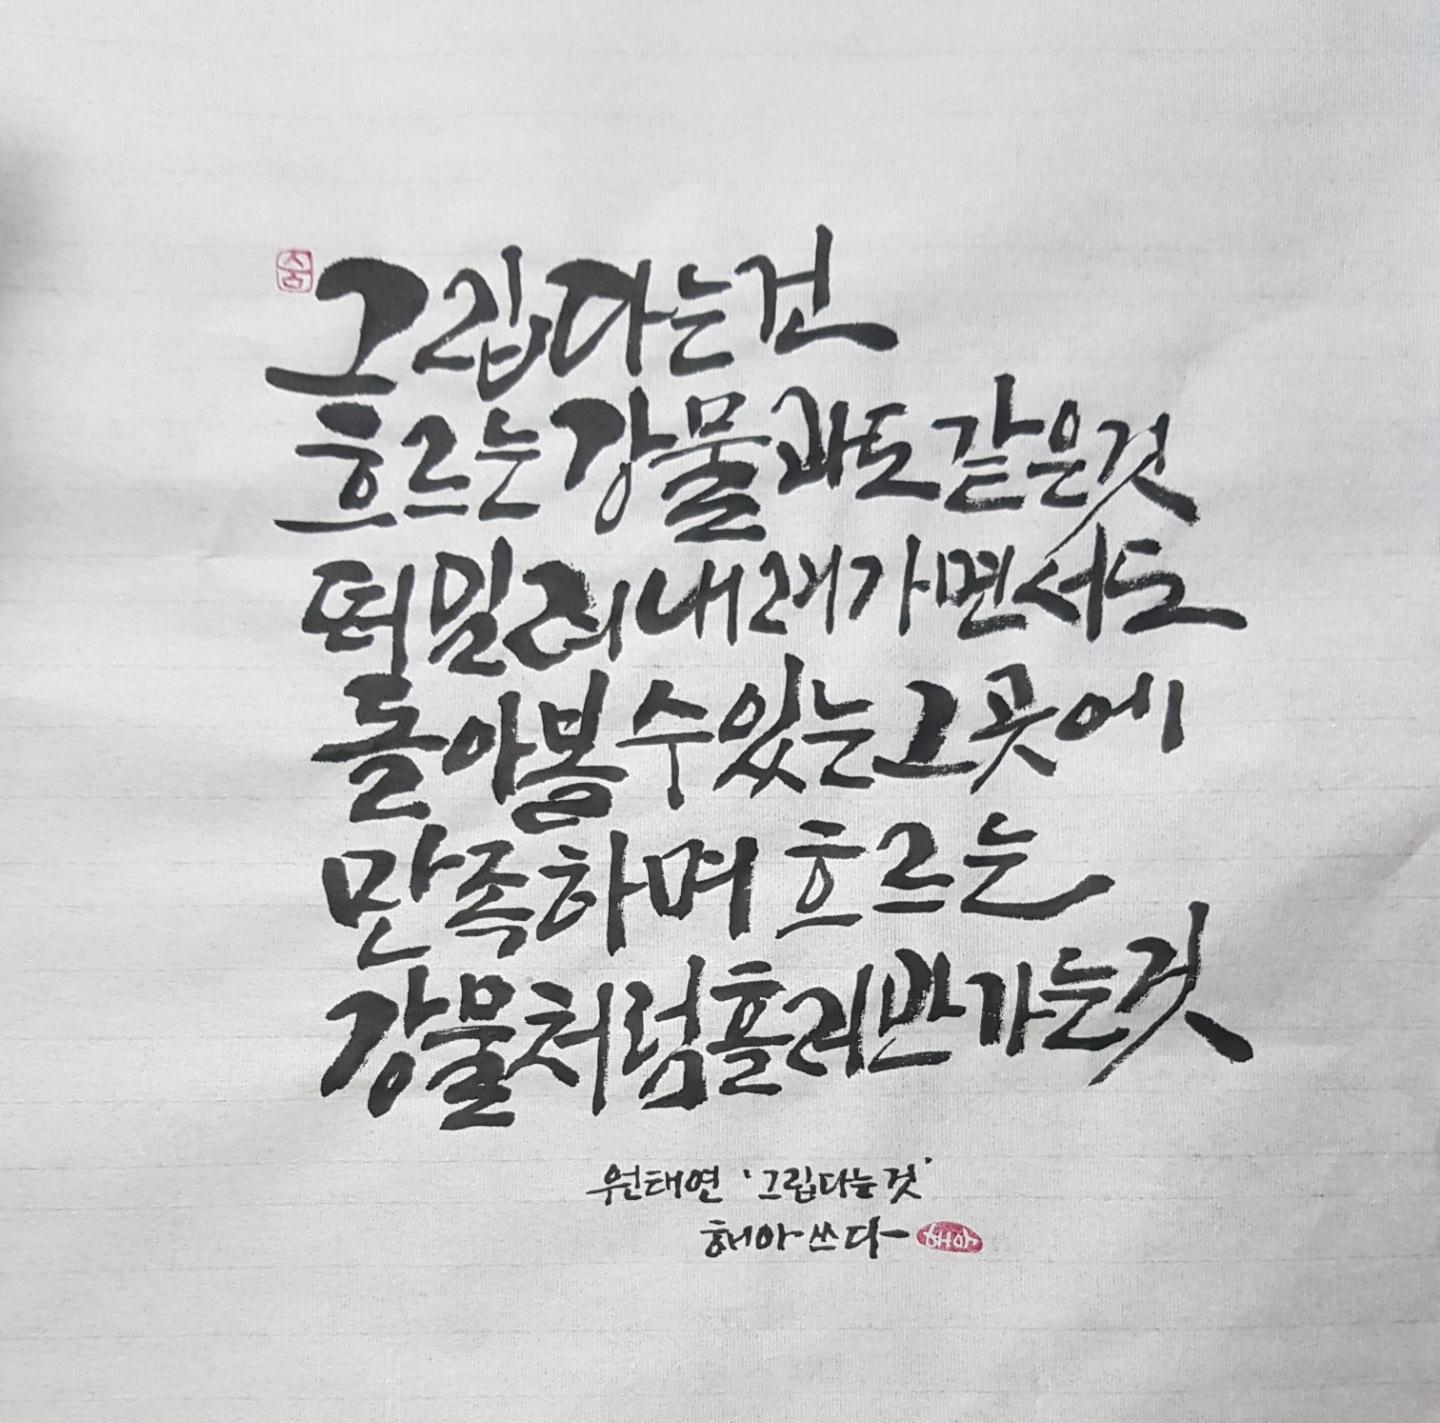 숨
그립다는건
흐르는강물과도같은것
떠밀려내려가면서도
돌아봄수있는그곳에
만족하며 흐르는
강물처럼흘러만가는것
원태연 '그립다는것'
해아쓰다
해아